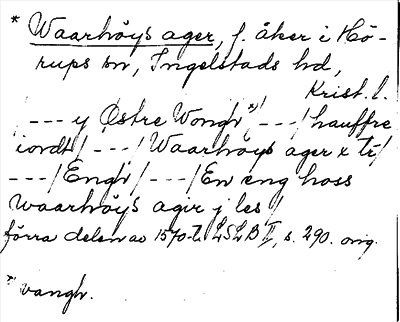 * Waarhöys ager, f. åker i Hö-
rups sn, Ingelstads hd,
Krist. l.
/ --- y Östre Wongh *) / --- / hauffre
iordt / --- / Waarhöys ager x tr /
--- / Engh / --- / En eng hoss
Waarhöys agir j les /
förra delen av 1570-t. LSLB II, s. 290. orig.
*) vangh.